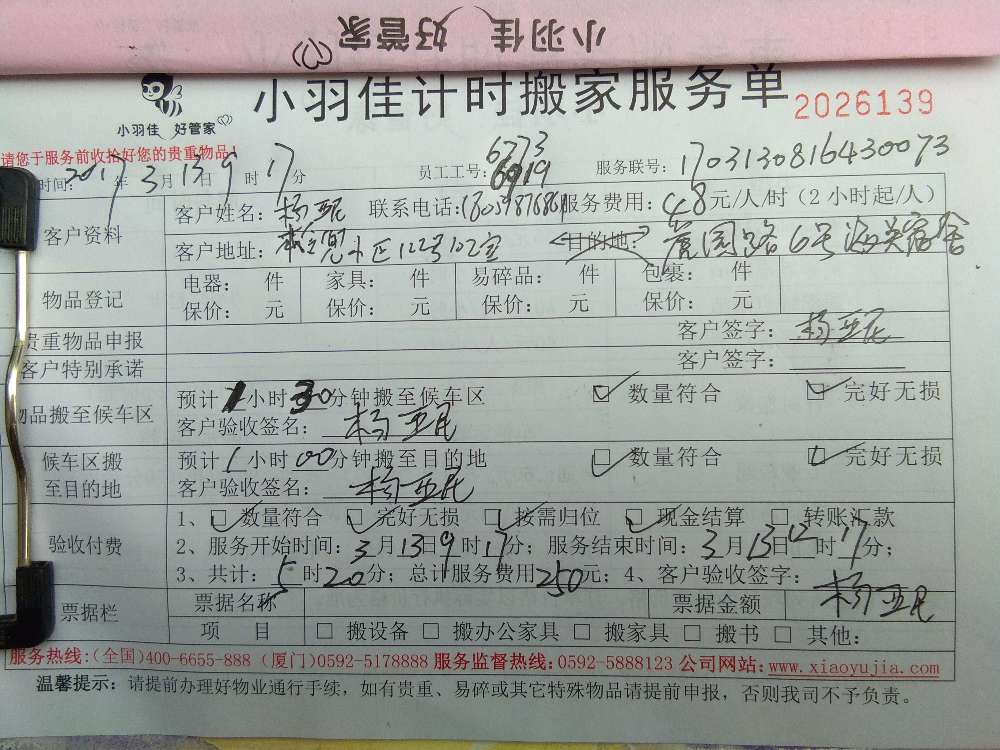 小羽佳 好管家
小羽佳 好管家
小羽佳计时搬家服务单 2026139
请您于服务前收拾好您的贵重物品!
时间: 2017年3月13日9时17分 员工工号: 6373 6919 服务联号: 1703130816430073
客户资料
客户姓名: 杨亚昵 联系电话: 服务费用: 48元/人/时(2小时起/人)
客户地址: 小区122号102室 目的地: 路6号海关宿舍
物品登记
电器: 件 家具: 件 易碎品: 件 包裹: 件
保价: 元 保价: 元 保价: 元 保价: 元
贵重物品申报 客户签字: 杨亚昵
客户特别承诺 客户签字:
物品搬至候车区
预计1小时30分钟搬至候车区 ☑ 数量符合 ☑ 完好无损
客户验收签名: 杨亚昵
候车区搬至目的地
预计1小时00分钟搬至目的地 ☑ 数量符合 ☑ 完好无损
客户验收签名: 杨亚昵
验收付费
1、☑ 数量符合 ☑ 完好无损 ☑ 按需归位 ☑ 现金结算 □ 转账汇款
2、服务开始时间: 3月13日9时17分; 服务结束时间: 3月13日12时17分;
3、共计: 5时20分; 总计服务费用250元; 4、客户验收签字: 杨亚昵
票据栏
票据名称 票据金额
项 目 □ 搬设备 □ 搬办公家具 □ 搬家具 □ 搬书 □ 其他:
服务热线:(全国)400-6655-888 (厦门)0592-5178888 服务监督热线:0592-5888123 公司网站:www.xiaoyujia.com
温馨提示: 请提前办理好物业通行手续, 如有贵重、易碎或其它特殊物品请提前申报, 否则我司不予负责。